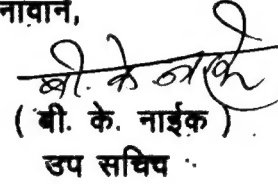 नावान,
बी. के. नाईक
( बी. के. नाईक )
उप सचिव